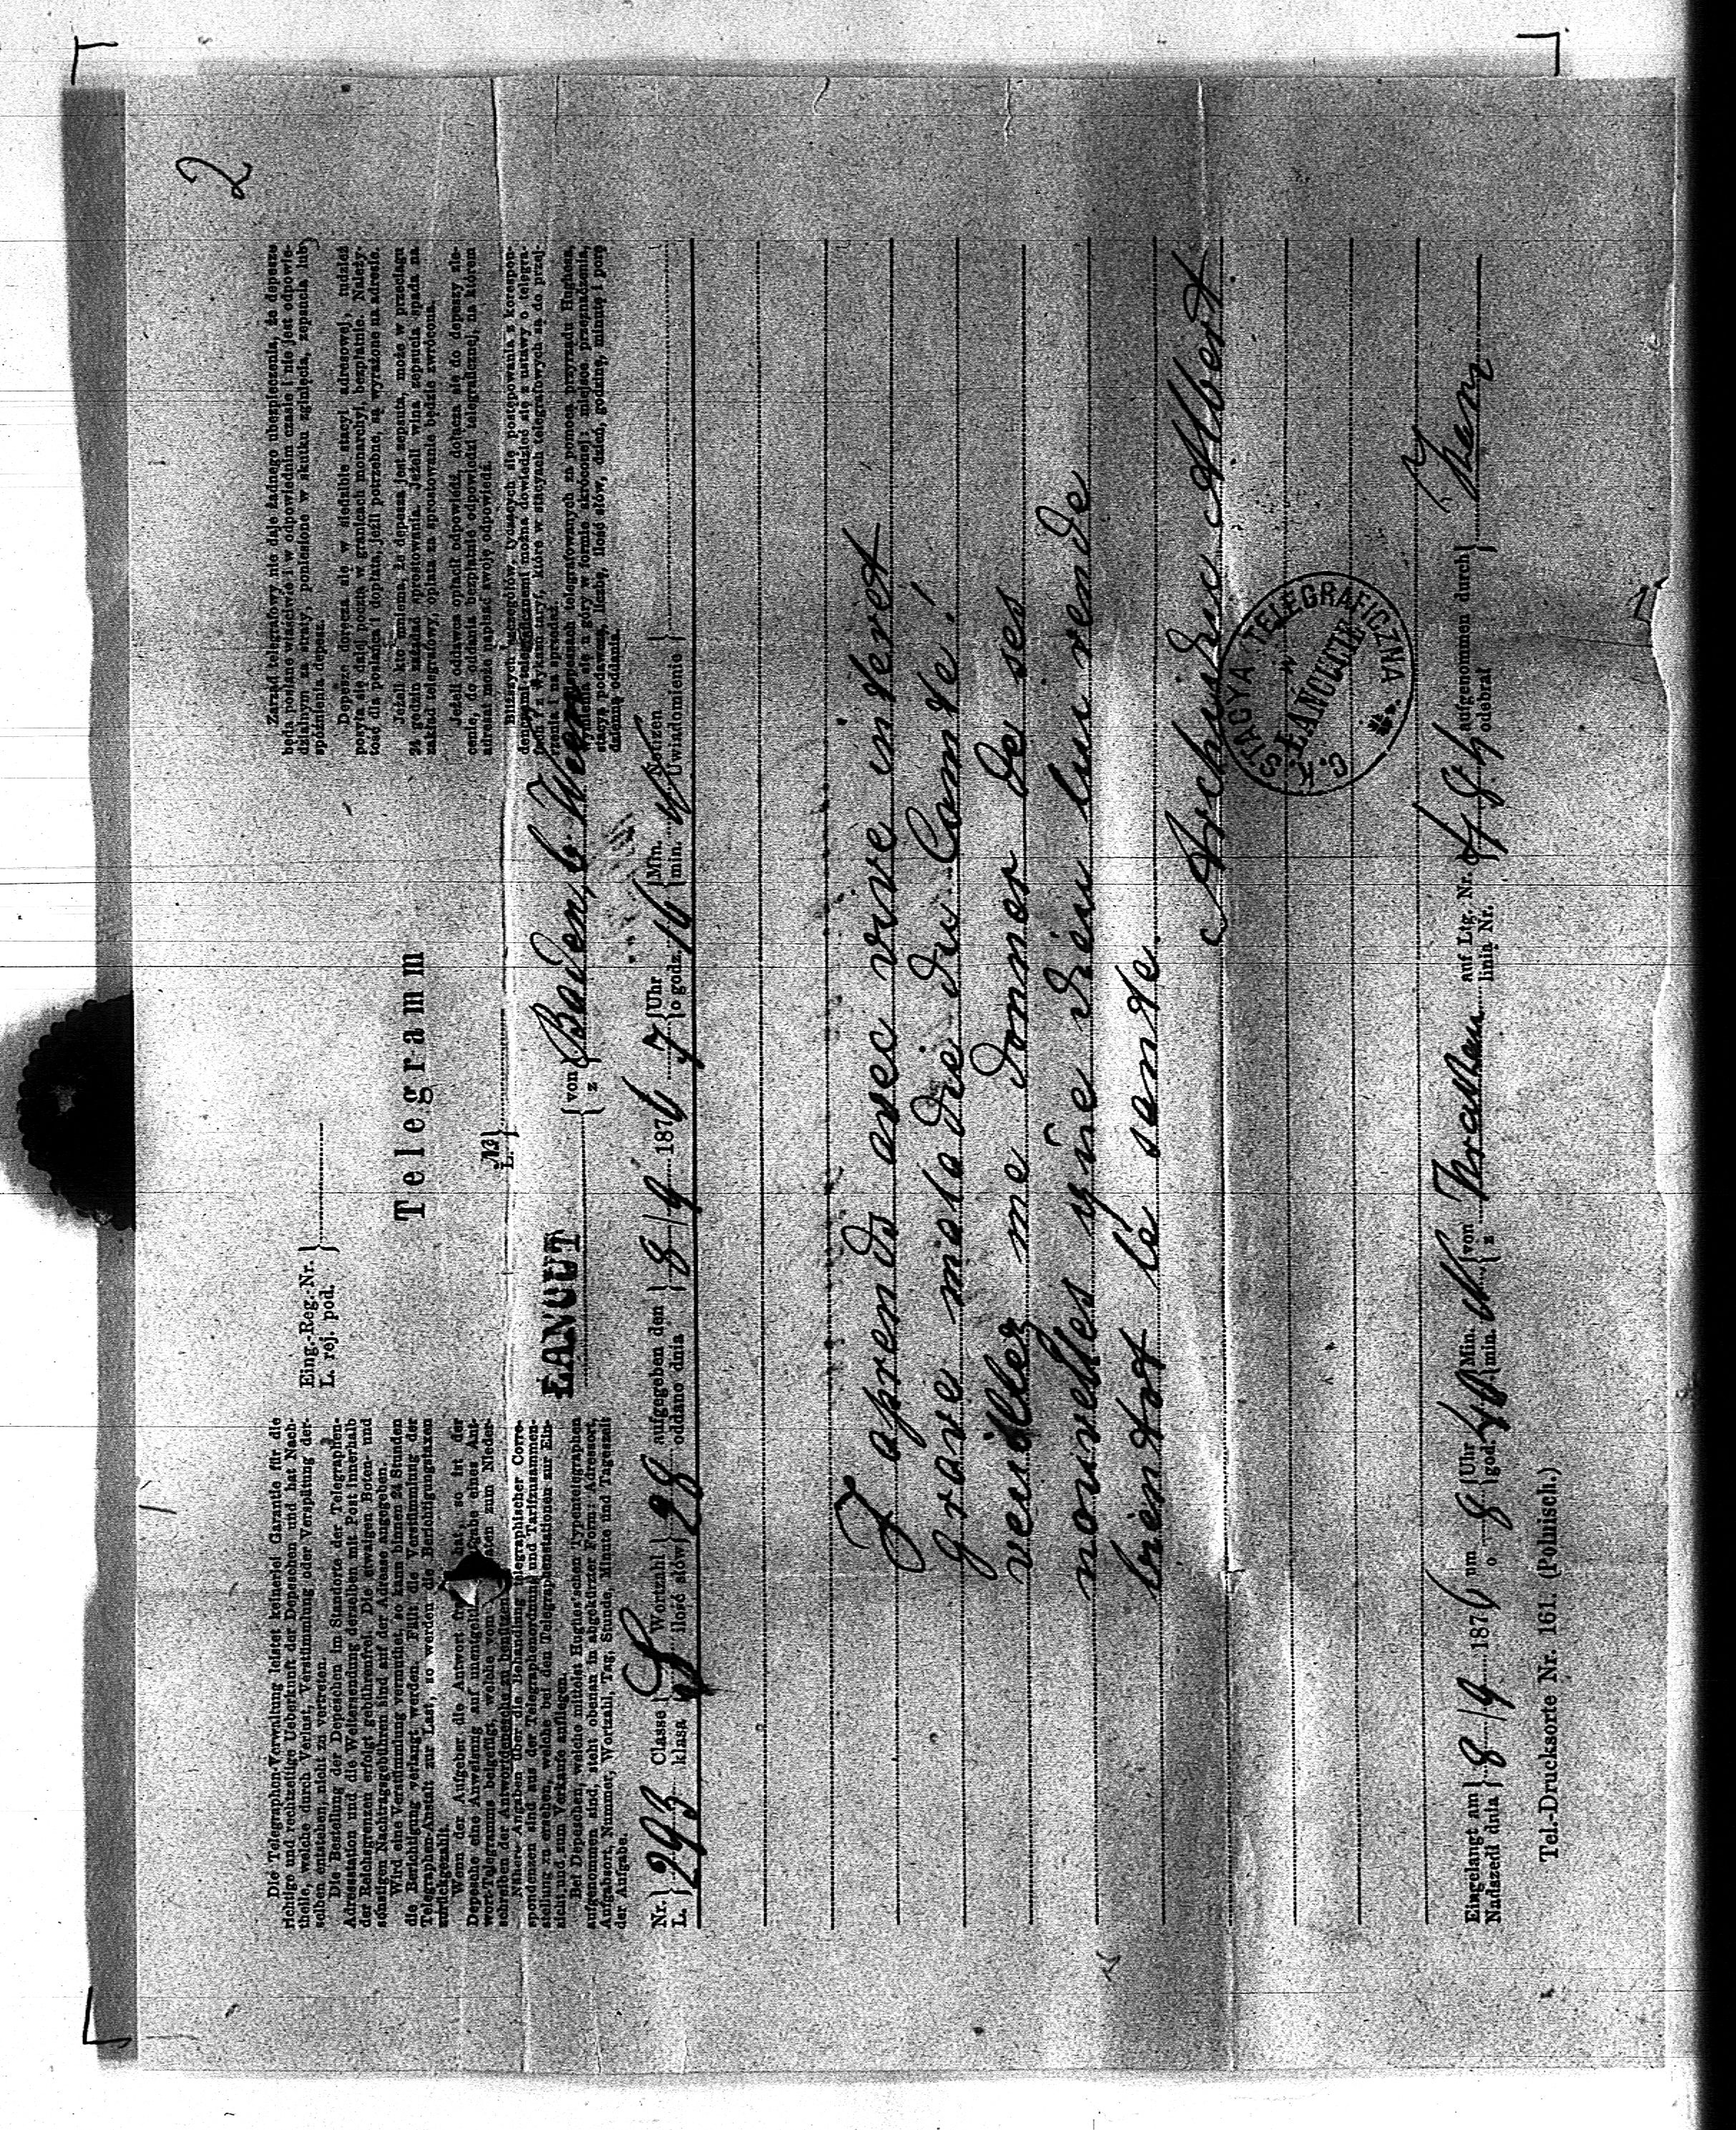 2
Die Telegraphen-Verwaltung leistet keinerlei Garantie für die
richtige und rechtzeitige Ueberkunft der Depeschen und hat Nach-
theile, welche durch Verlust, Verstümmlung oder Verspätung der-
selben entstehen, nicht zu vertreten.
Die Bestellung der Depeschen im Standorte der Telegraphen-
Adressstation und die Weitersendung derselben mit Post innerhalb
der Reichsgrenzen erfolgt gebührenfrei. Die etwaigen Boten- und
sonstigen Nachtragsgebühren sind auf der Adresse angegeben.
Wird eine Verstümmlung vermuthet, so kann binnen 24 Stunden
die Berichtigung verlangt werden. Fällt die Verstümmlung der
Telegraphen-Anstalt zur Last, so werden die Berichtigungstaxen
zurückgezahlt.
Wenn der Aufgeber die Antwort hat, so ist der
Depesche eine Anweisung auf unentgel gabe eines Ant-
wort-Telegramms beigefügt, welche vom aten zum Nieder-
schreiben der Antwortdepesche zu benützen
Nähere Angaben über die Behandlung telegraphischer Corre-
spondenzen sind aus der Telegraphenordnung und Tarifzusammen-
stellung zu ersehen, welche bei den Telegraphenstationen zur Ein-
sicht und zum Verkaufe aufliegen.
Bei Depeschen, welche mittelst Hughes'schen Typentelegraphen
aufgenommen sind, steht obenan in abgekürzter Form: Adressort,
Aufgabsort, Nummer, Wortzahl, Tag, Stunde, Minute und Tageszeit
der Aufgabe.
Eing.-Reg.-Nr.
L. rej. pod.
Telegramm
№
L.
ŁANCUT
von
z
Baden b. Wien
Zarząd telegrafowy nie daje żadnego ubezpieczenia, że depesze
będą posłane właściwie i w odpowiednim czasie i nie jest odpowie-
dzialnym za straty, poniesione w skutku zginięcia, zepsucia lub
spóźnienia depesz.
Depesze doręcza się w siedzibie stacyi adresowej, tudzież
posyła się dalej pocztą w granicach monarchyi, bezpłatnie. Należy-
tość dla posłańca i dopłata, jeźli potrzebne, są wyrażone na adresie.
Jeżeli kto mniema, że depesza jest zepsuta, może w przeciągu
24 godzin zażądać sprostowania. Jeżeli wina zepsucia spada na
zakład telegrafowy, opłata za sprostowanie będzie zwrócona.
Jeżeli oddawca opłacił odpowiedź, dołącza się do depeszy zle-
cenie, do oddania bezpłatnie odpowiedzi telegraficznej, na którem
adresat może napisać swoję odpowiedź.
Bliższych szczegółów, tyczących się postępowania z korespon-
dencyami telegraficznemi można dowiedzieć się z ustawy o telegra-
fach i z wykazu taryf, które w stacyach telegrafowych są do przej-
rzenia i na sprzedaż.
W depeszach telegrafowanych za pomocą przyrządu Hughesa,
wymienia się z góry w formie skróconej: miejsce przeznaczenia,
stacyę podawczą, liczbę, ilość słów, dzień, godzinę, minutę i porę
dzienną oddania.
Nr. 293 Classe S Wortzahl 28 aufgegeben den 8/9 1876 7 Uhr 16 Min. Notizen
L. klasa ilość słów oddano dnia o godz. min. Uwiadomienie
J aprends avec vive interet
grave maladie du Comte!
veuillez me donner de ses
nouvelles que dieu lui rende
bientot le sante.
Archiduc Albert
C. K. STACYA TELEGRAFICZNA
W
ŁAŃCUCIE
Eingelangt am 8/9 1876 um 8 Uhr Min. von Krakau auf Ltg. Nr. aufgenommen durch
Nadszedł dnia o god. min. z linia Nr. odebrał
Tel.-Drucksorte Nr. 161. (Polnisch.)